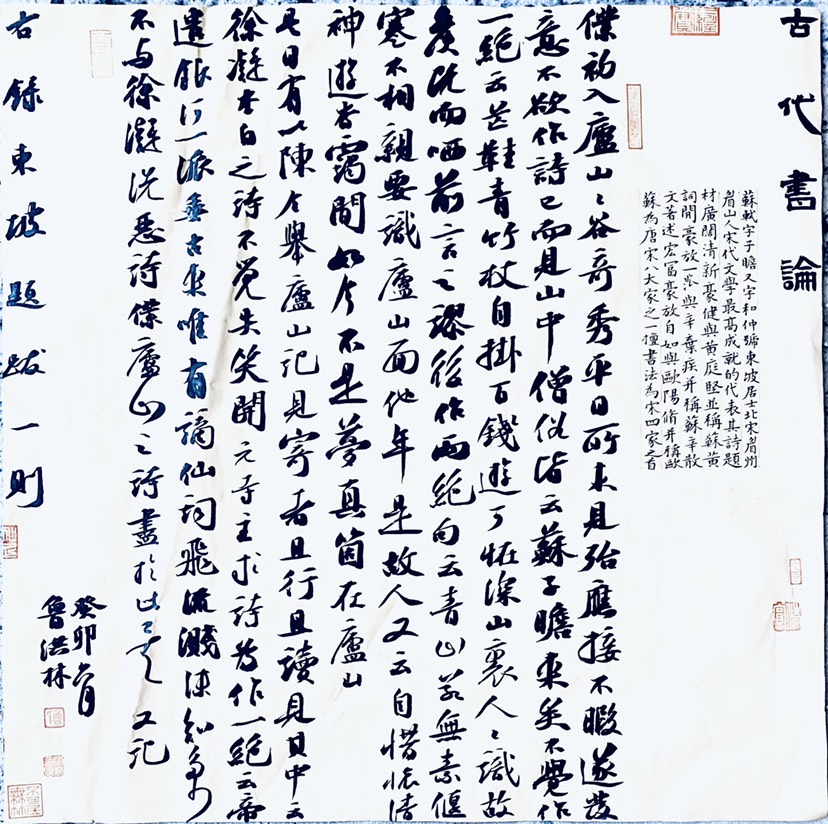 古代書論
蘇軾字子瞻又字和仲號東坡居士北宋眉州
眉山人宋代文學最高成就的代表其詩題
材廣闊清新豪健與黃庭堅並稱蘇黃
詞開豪放一派與辛棄疾并稱蘇辛散
文著述宏富豪放自如與歐陽脩并稱歐
蘇為唐宋八大家之一擅書法為宋四家之首
僕初入廬山々谷奇秀平日所未見殆應接不暇遂發
意不欲作詩已而見山中僧俗皆云蘇子瞻來矣不覺作
一絕云芒鞋青竹杖自掛百錢遊可怪深山裏人々識故
侯既而哂前言之謬後作兩絕句云青山若無素偃
蹇不相親要識廬山面他年是故人又云自惜懷清
神遊杳靄間如今不是夢真箇在廬山
是日有以陳令舉廬山記見寄者且行且讀見其中云
徐凝李白之詩不覺失笑開元寺主求詩為作一絕云帝
遣銀河一派垂古來唯有謫仙詞飛流濺沫知多少
不与徐凝洗惡詩僕廬山之詩盡於此矣又記
右錄東坡題跋一則
癸卯六月
魯洪林